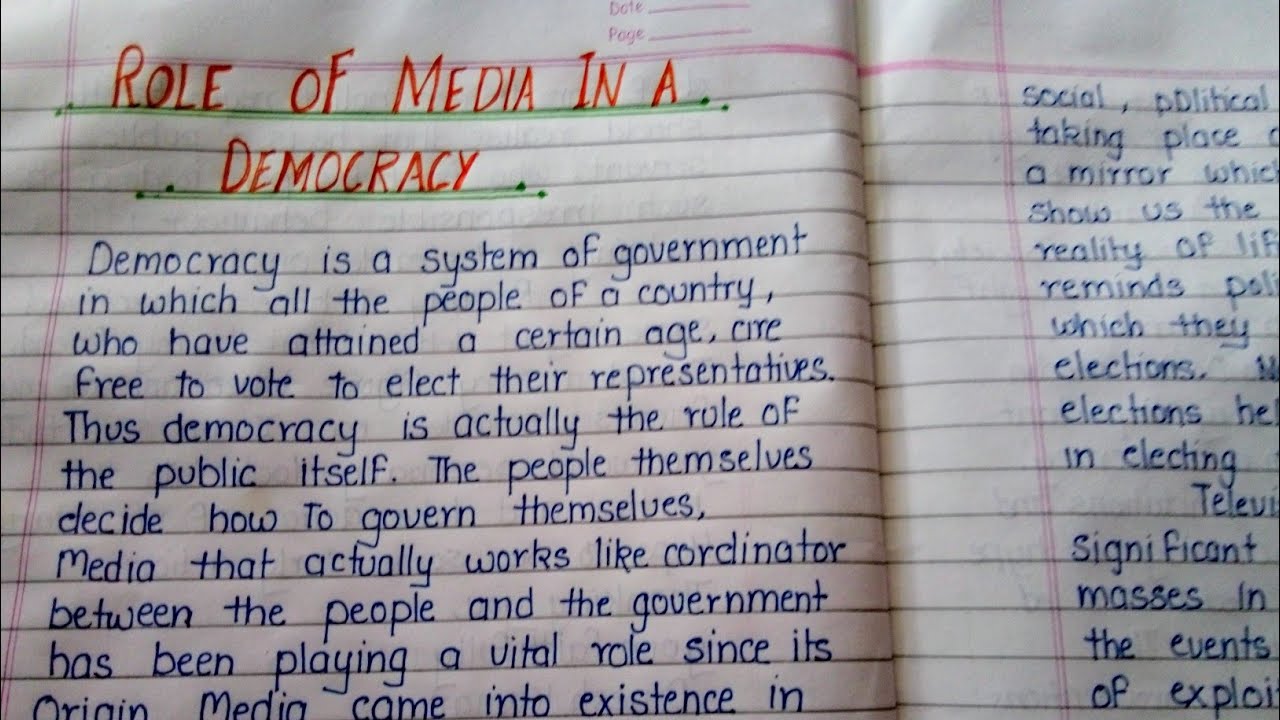 Date
Page
ROLE OF MEDIA IN A
DEMOCRACY
Democracy is a system of government
in which all the people of a country,
who have attained a certain age, are
free to vote to elect their representatives.
Thus democracy is actually the role of
the public itself. The people themselves
decide how To govern themselves,
Media that actually works like cordinator
between the people and the government
has been playing a vital role since its
Origin Media came into existence in
social, political
taking place
a mirror which
show us the
reality of
reminds
which they
elections.
elections
in electing
Significant
masses in
the events
of